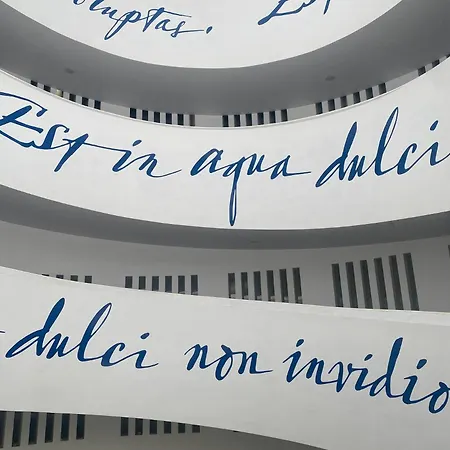 oluptas. Est
Est in aqua dulci
dulci non invidio